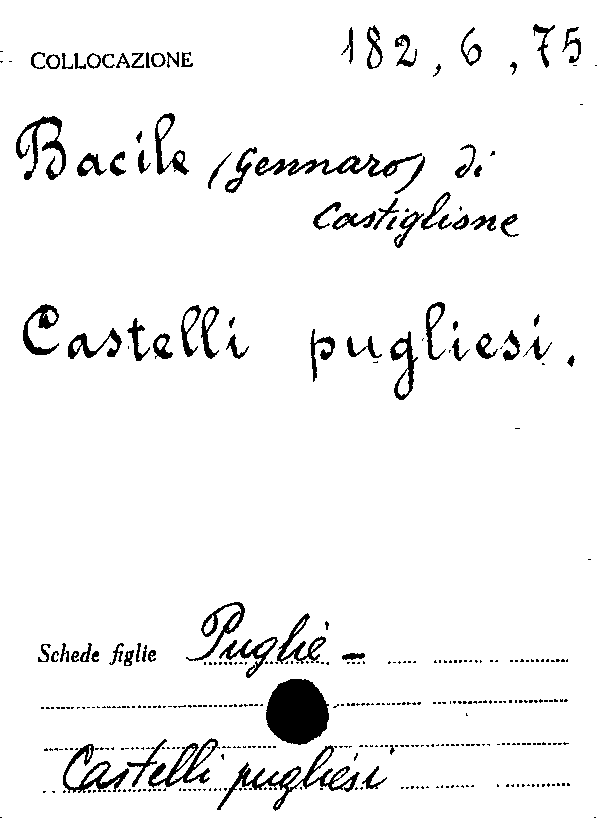 COLLOCAZIONE 182, 6, 75
Bacile (Gennaro) di
Castiglione
Castelli pugliesi.
Schede figlie Puglie -
Castelli pugliesi